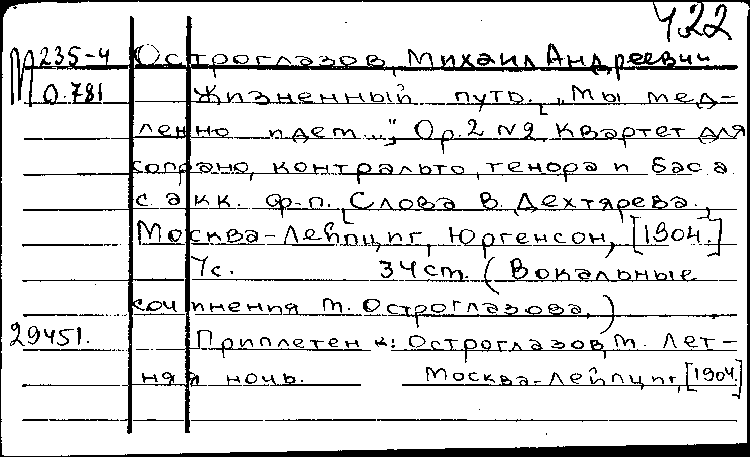 422
М 235-4 Остроглазов, Михаил Андреевич
О.781 Жизненный путь. „Мы мед-
ленно идем...", Ор.2 №2. Квартет для
сопрано, контральто, тенора и баса
с акк. ф-п. Слова В. Дехтярева.,
Москва-Лейпциг, Юргенсон, [1904.]
7с. 34 cm. (Вокальные
сочинения М. Остроглазова.)
29451. Приплетен к: Остроглазов, М. Лет-
няя ночь. Москва-Лейпциг, [1904.]